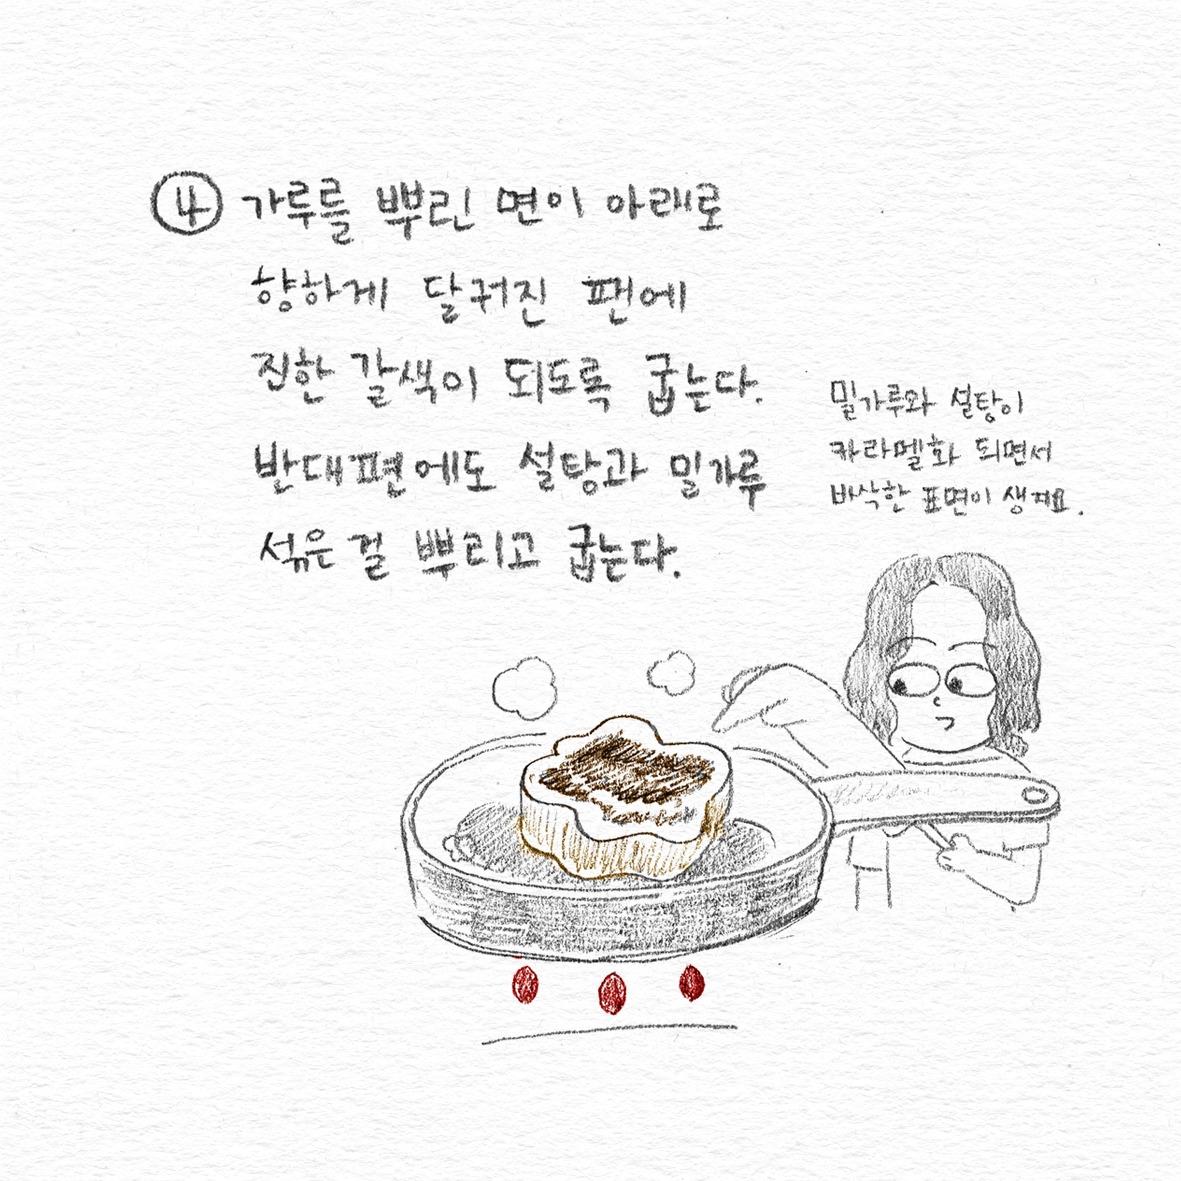 ④ 가루를 뿌린 면이 아래로
향하게 달궈진 팬에
진한 갈색이 되도록 굽는다.
반대편에도 설탕과 밀가루
섞은 걸 뿌리고 굽는다.
밀가루와 설탕이
카라멜화 되면서
바삭한 표면이 생겨요.